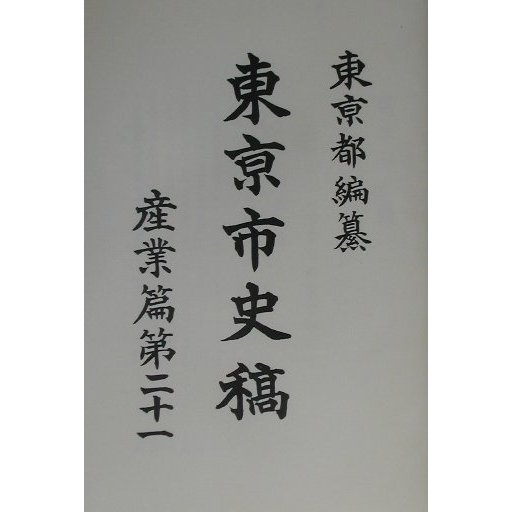 東亰都編纂
東亰市史稿
産業篇第二十一